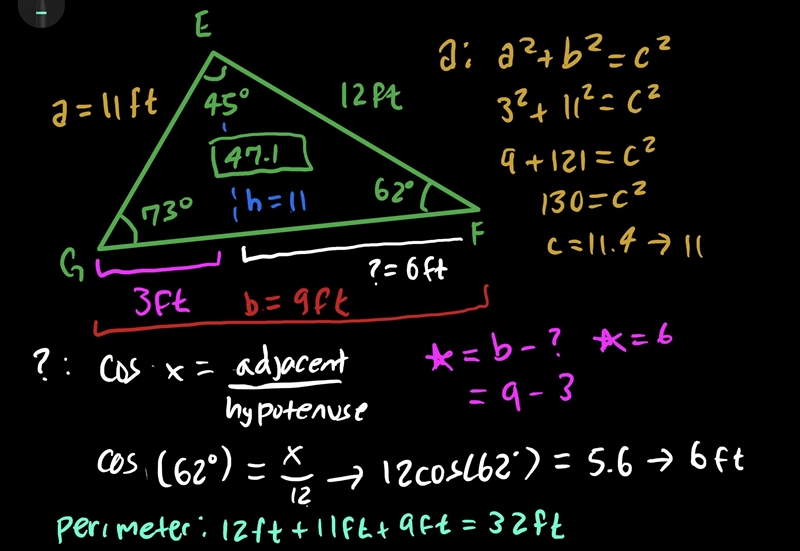 E
a = 11ft
45°
12ft
47.1
73°
h = 11
62°
G
F
3ft
? = 6ft
b = 9ft
a: a² + b² = c²
3² + 11² = c²
9 + 121 = c²
130 = c²
c = 11.4 → 11
?: cos x = adjacent
hypotenuse
☆ = b - ? ☆ = 6
= 9 - 3
cos (62°) = x/12 → 12cos(62°) = 5.6 → 6ft
perimeter: 12ft + 11ft + 9ft = 32ft